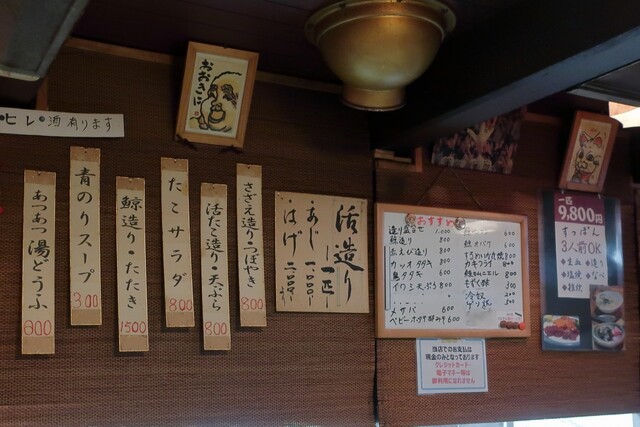 おおきに
ヒレ酒有ります
あつあつ湯どうふ
800
青のりスープ
300
鯨造り・たたき
1500
たこサラダ
800
活たこ造り・天ぷら
800
さざえ造り・つぼやき
800
活造り
一匹
あじ 一,〇〇〇
はげ 二,〇〇〇
おすすめ
造り盛合せ 1,000
鯨造り 800
カツオタタキ
イワシ天ぷら 800
メサバ 600
ベビーホタテ酢みそ 600
カキフライ
もずく酢
冷奴
当店でのお支払は
現金のみとなっております
クレジットカード・
電子マネー等は
御利用になれません
一匹
9,800円
すっぽん
3人前OK
生血
造り
塩焼
なべ
雑炊